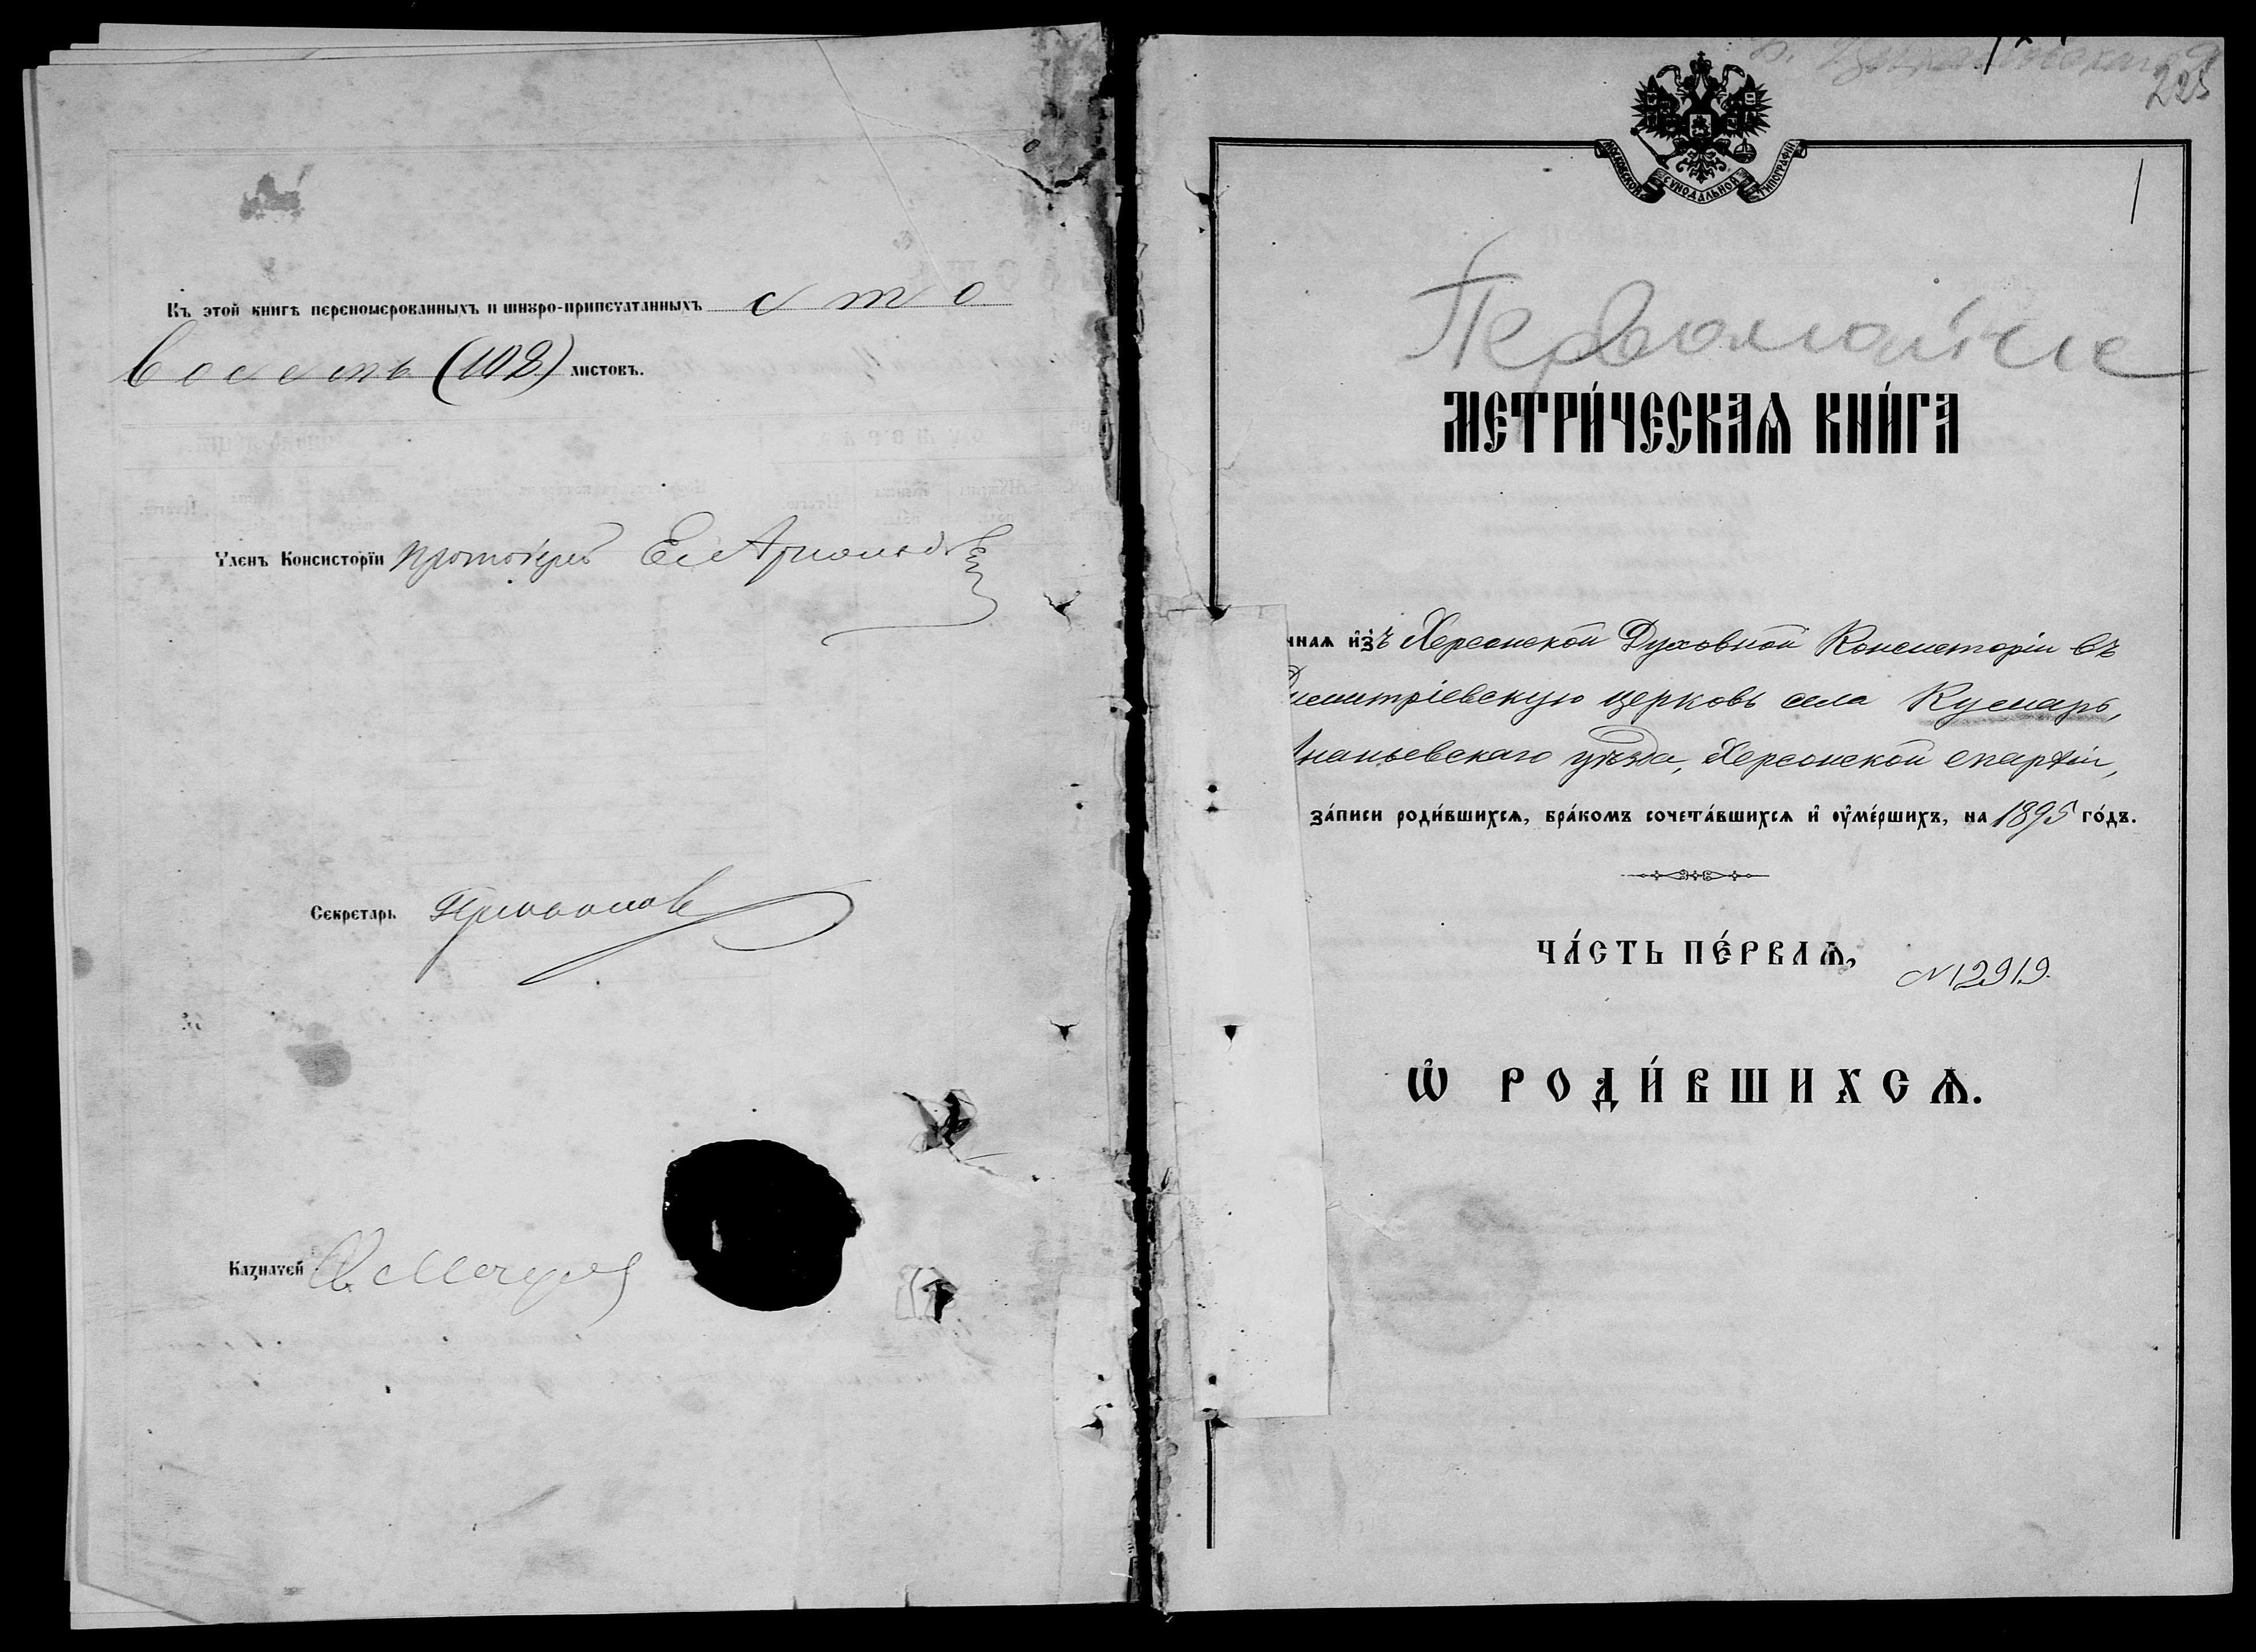 Къ этой книгѣ перономерованныхъ и шнуро-припечатанныхъ сто
восемь (108) листовъ.
Членъ Консисторїи Протоіерей
Секретарь
Казначей
225
МОСКОВСКОЙ СѴНОДАЛЬНОЙ ТИПОГРАФІИ
1
Первомайське
МЕТРИ́ЧЕСКАѦ КНИ́ГА
ннаѧ и҆зъ Херсонской Духовной Консисторіи въ
Димитріевскую церковь села Кумары,
Ананьевскаго уѣзда, Херсонской епархіи,
за́писи роди́вшихсѧ, бра́комъ сочета́вшихсѧ и҆ оу҆ме́ршихъ, на 1895 го́дъ.
ЧА́СТЬ ПЕ́РВАѦ,
№ 12919.
Ѡ҆ РОДИ́ВШИХСѦ.